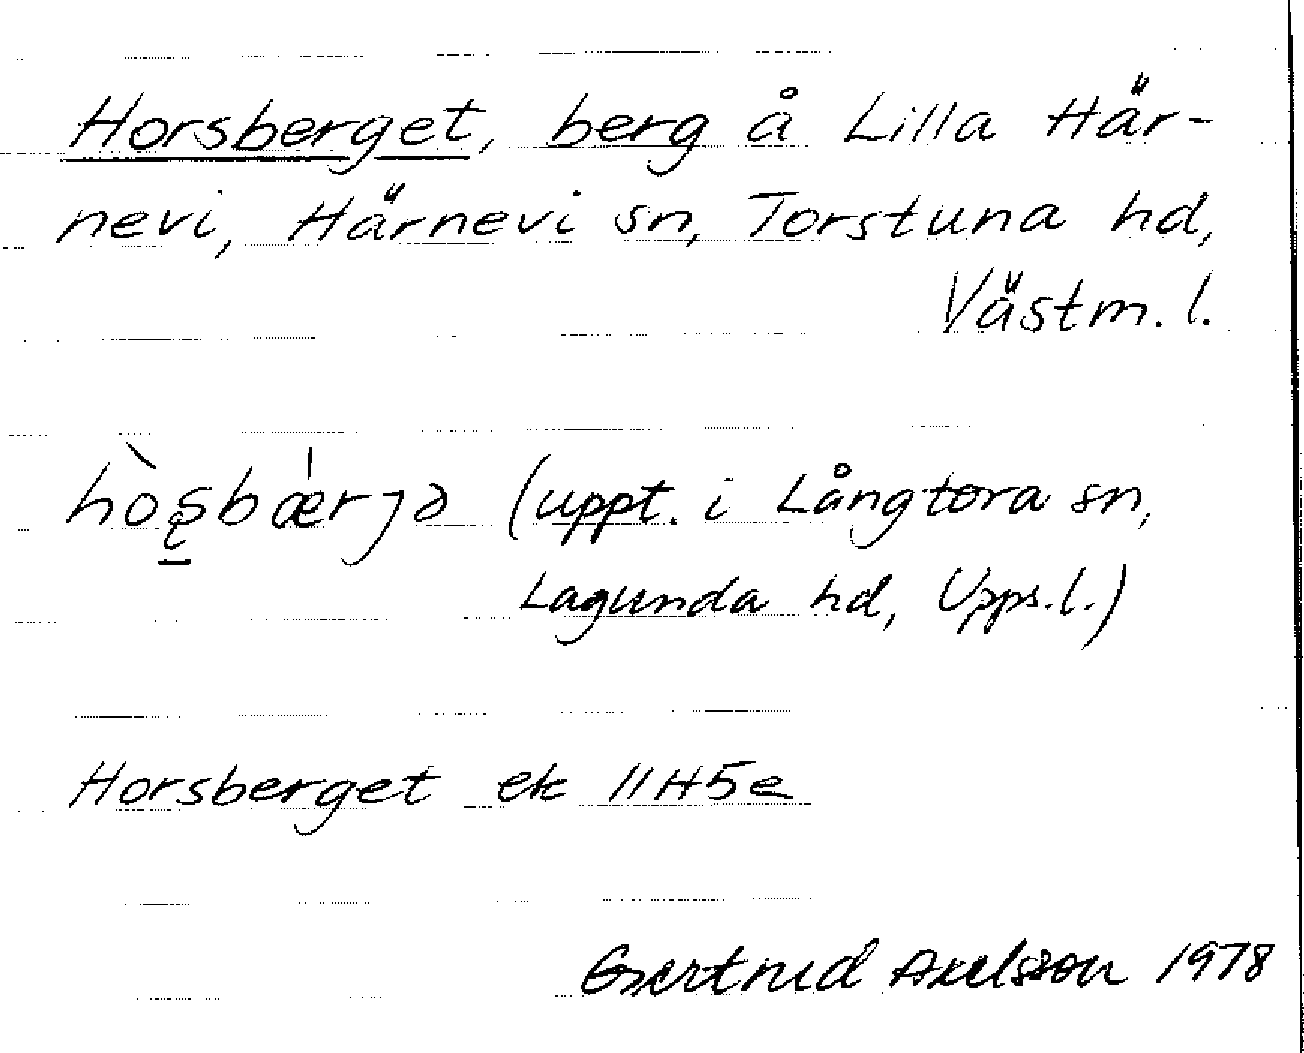 Horsberget, berg å Lilla Här-
nevi, Härnevi sn, Torstuna hd,
Västm. l.
hòȿbæ̍rjə (uppt. i Långtora sn,
Lagunda hd, Upps. l.)
Horsberget ek 11H5e
Gertrud Axelsson 1978